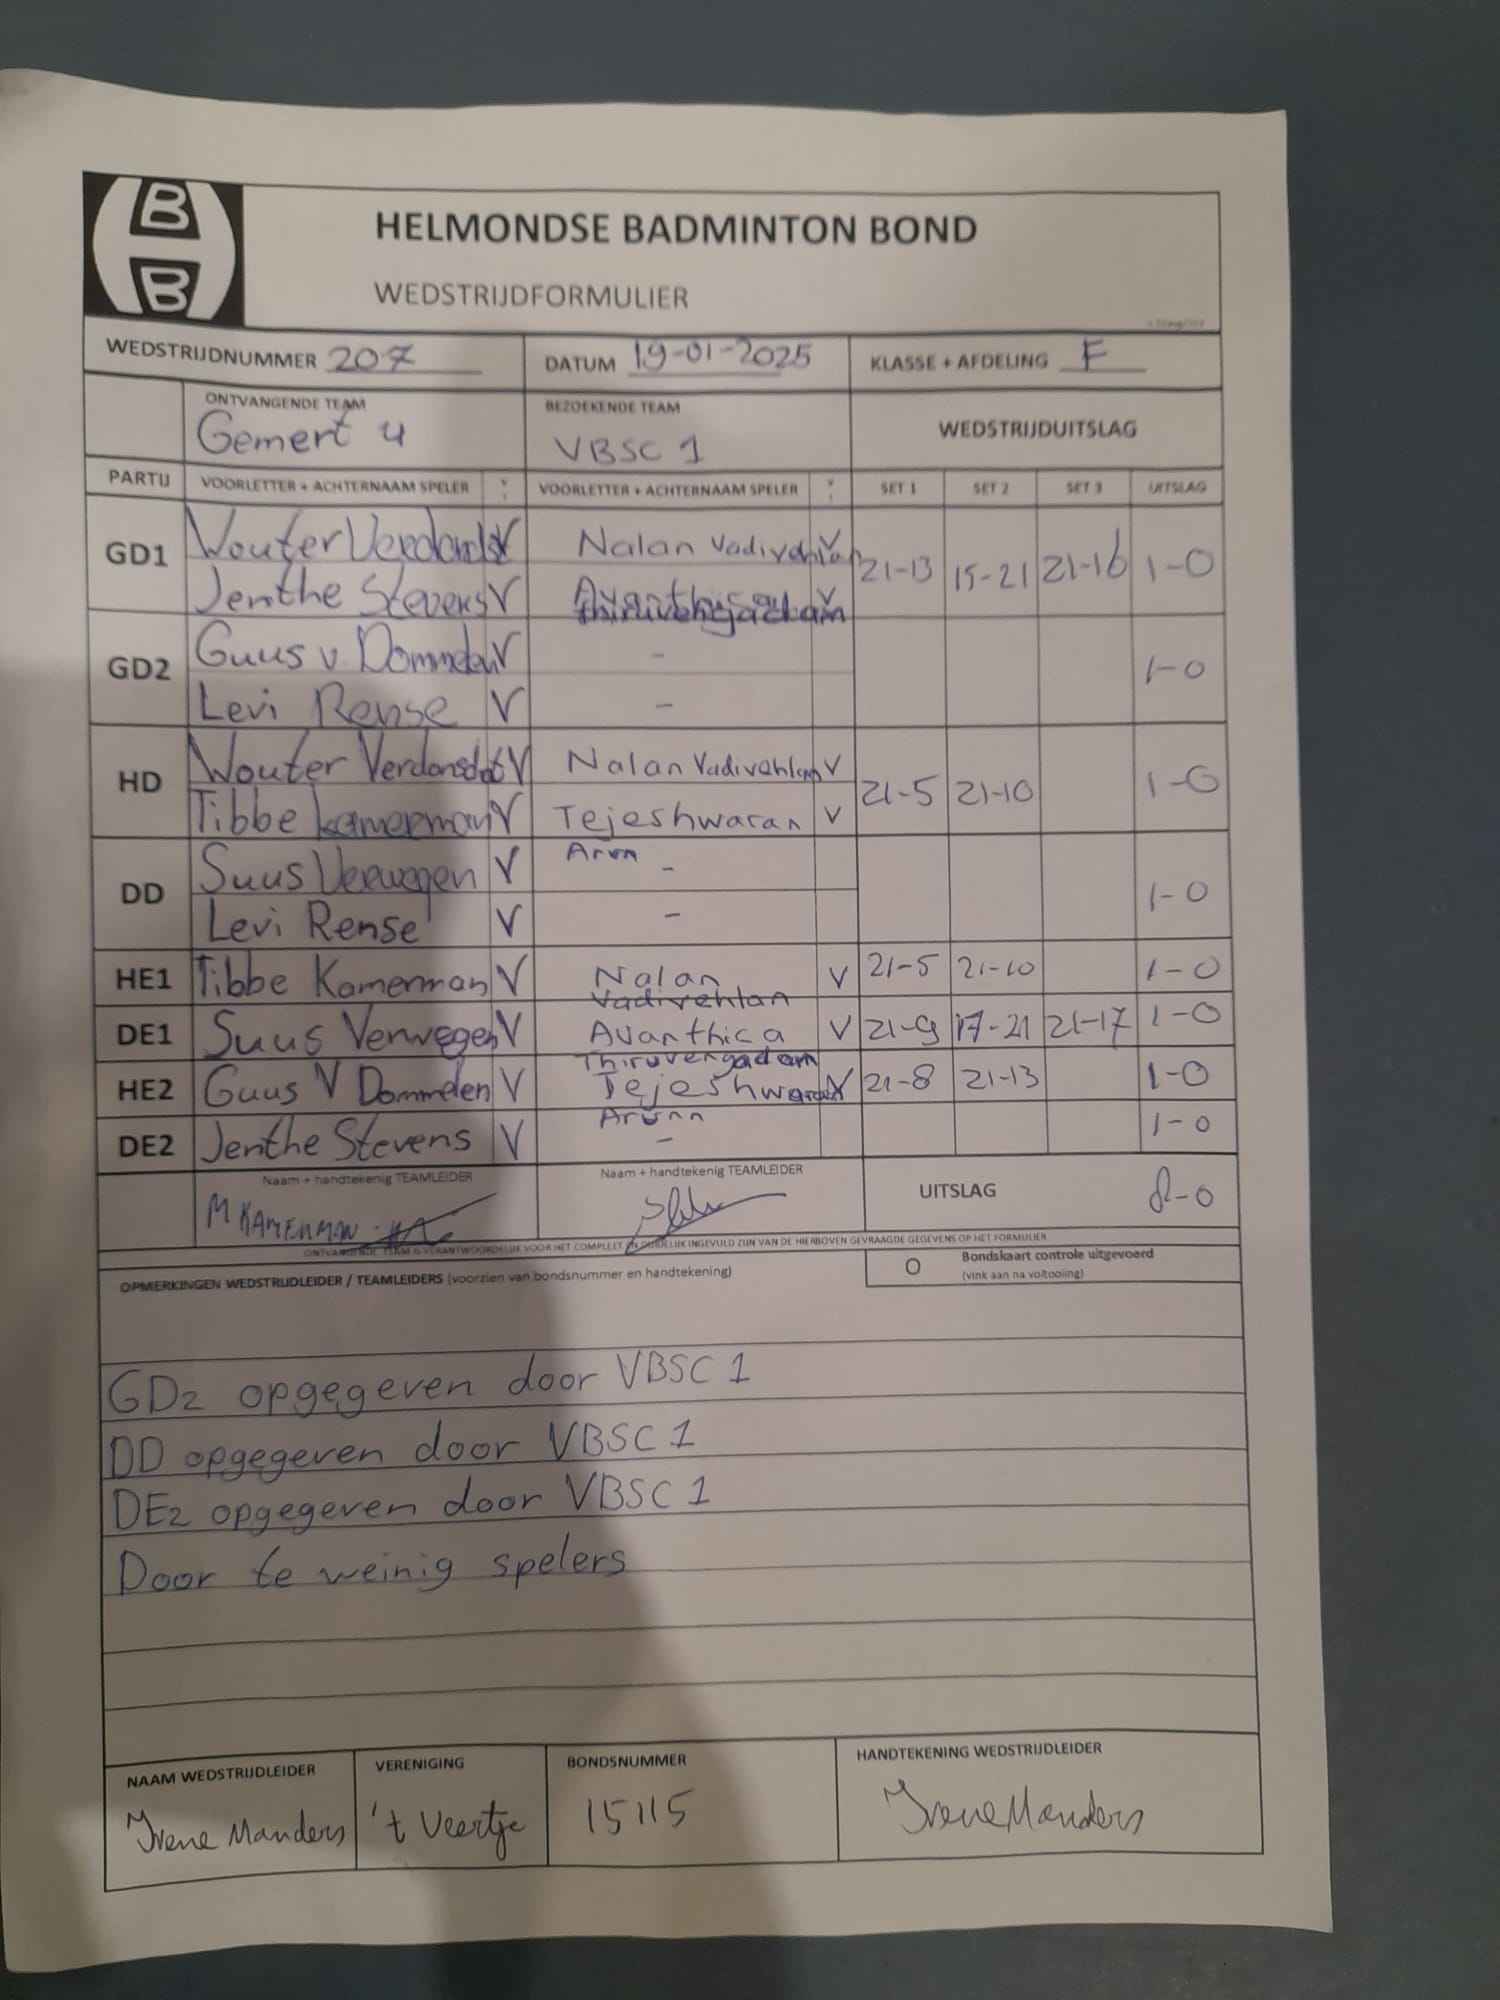 B
B
HELMONDSE BADMINTON BOND
WEDSTRIJDFORMULIER
WEDSTRIJDNUMMER 207 DATUM 19-01-2025 KLASSE + AFDELING F
ONTVANGENDE TEAM BEZOEKENDE TEAM WEDSTRIJDUITSLAG
Gemert 4 VBSC 1
PARTIJ VOORLETTER + ACHTERNAAM SPELER VOORLETTER + ACHTERNAAM SPELER SET 1 SET 2 SET 3 UITSLAG
GD1 Wouter V Nalan Vadivehlan V 21-13 15-21 21-16 1-0
Jenthe Stevens V Avanthica Thiruvengadam V
GD2 Guus v. Dommelen V - 1-0
Levi Rense V -
HD Wouter Verdonschot V Nalan Vadivehlan V 21-5 21-10 1-0
Tibbe Kamerman V Tejeshwaran V
Arun
DD Suus Verwegen V - 1-0
Levi Rense V -
HE1 Tibbe Kamerman V Nalan V 21-5 21-10 1-0
Vadivehlan
DE1 Suus Verwegen V Avanthica V 21-9 17-21 21-17 1-0
Thiruvengadam
HE2 Guus V Dommelen V Tejeshwaran V 21-8 21-13 1-0
Arunn
DE2 Jenthe Stevens V - 1-0
Naam + handtekenig TEAMLEIDER Naam + handtekenig TEAMLEIDER UITSLAG 8-0
M KAMERMAN
ONTVANGENDE TEAM IS VERANTWOORDELIJK VOOR HET COMPLEET EN DUIDELIJK INGEVULD ZIJN VAN DE HIERBOVEN GEVRAAGDE GEGEVENS OP HET FORMULIER
OPMERKINGEN WEDSTRIJDLEIDER / TEAMLEIDERS (voorzien van bondsnummer en handtekening) O Bondskaart controle uitgevoerd
(vink aan na voltooiing)
GD2 opgegeven door VBSC 1
DD opgegeven door VBSC 1
DE2 opgegeven door VBSC 1
Door te weinig spelers
NAAM WEDSTRIJDLEIDER VERENIGING BONDSNUMMER HANDTEKENING WEDSTRIJDLEIDER
Irene Manders 't Veertje 15115 Irene Manders